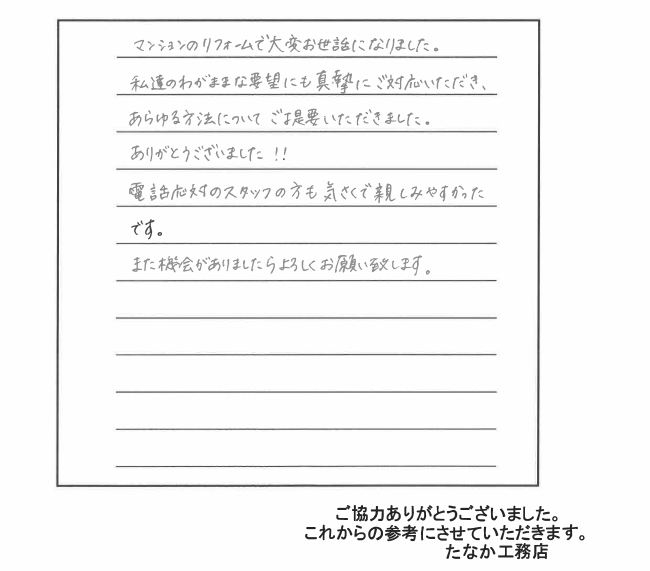 マンションのリフォームで大変お世話になりました。
私達のわがままな要望にも真摯にご対応いただき、
あらゆる方法について ご提要いただきました。
ありがとうございました!!
電話応対のスタッフの方も気さくで親しみやすかった
です。
また機会がありましたらよろしくお願い致します。
ご協力ありがとうございました。
これからの参考にさせていただきます。
たなか工務店